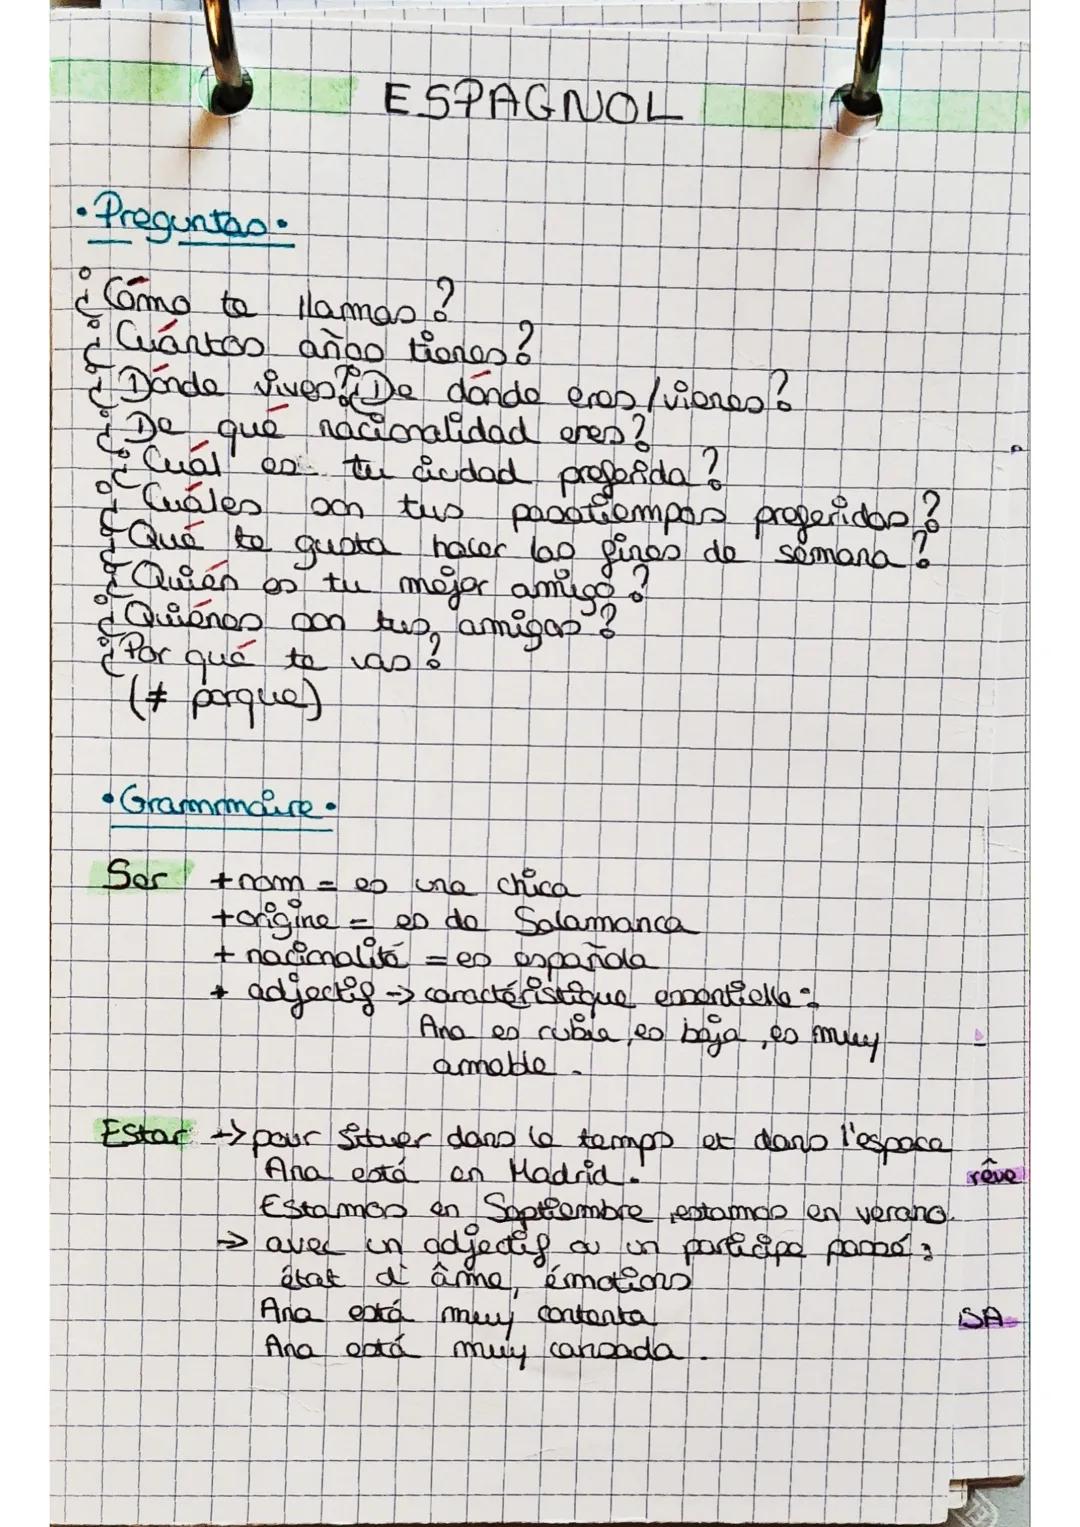 ESPAGNOL
• Preguntas •
¿Cómo te llamas?
¿Cuántos años tienes?
¿Dónde vives? ¿De dónde eres/vienes?
¿De qué nacionalidad eres?
¿Cuál es tu ciudad preferida?
¿Cuáles son tus pasatiempos preferidos?
¿Qué te gusta hacer los fines de semana?
¿Quién es tu mejor amigo?
¿Quiénes son tus amigos?
¿Por qué te vas?
(≠ porque)
• Grammaire •
Ser + nom = es una chica
+ origine = es de Salamanca
+ nacionalité = es española
+ adjectif → caractéristique essentielle :
Ana es rubia, es baja, es muy
amable.
Estar → pour situer dans le temps et dans l'espace
Ana está en Madrid.
rêve
Estamos en Septiembre, estamos en verano.
→ avec un adjectif ou un participe passé :
état d'âme, émotions
Ana está muy contenta
SA
Ana está muy cansada.